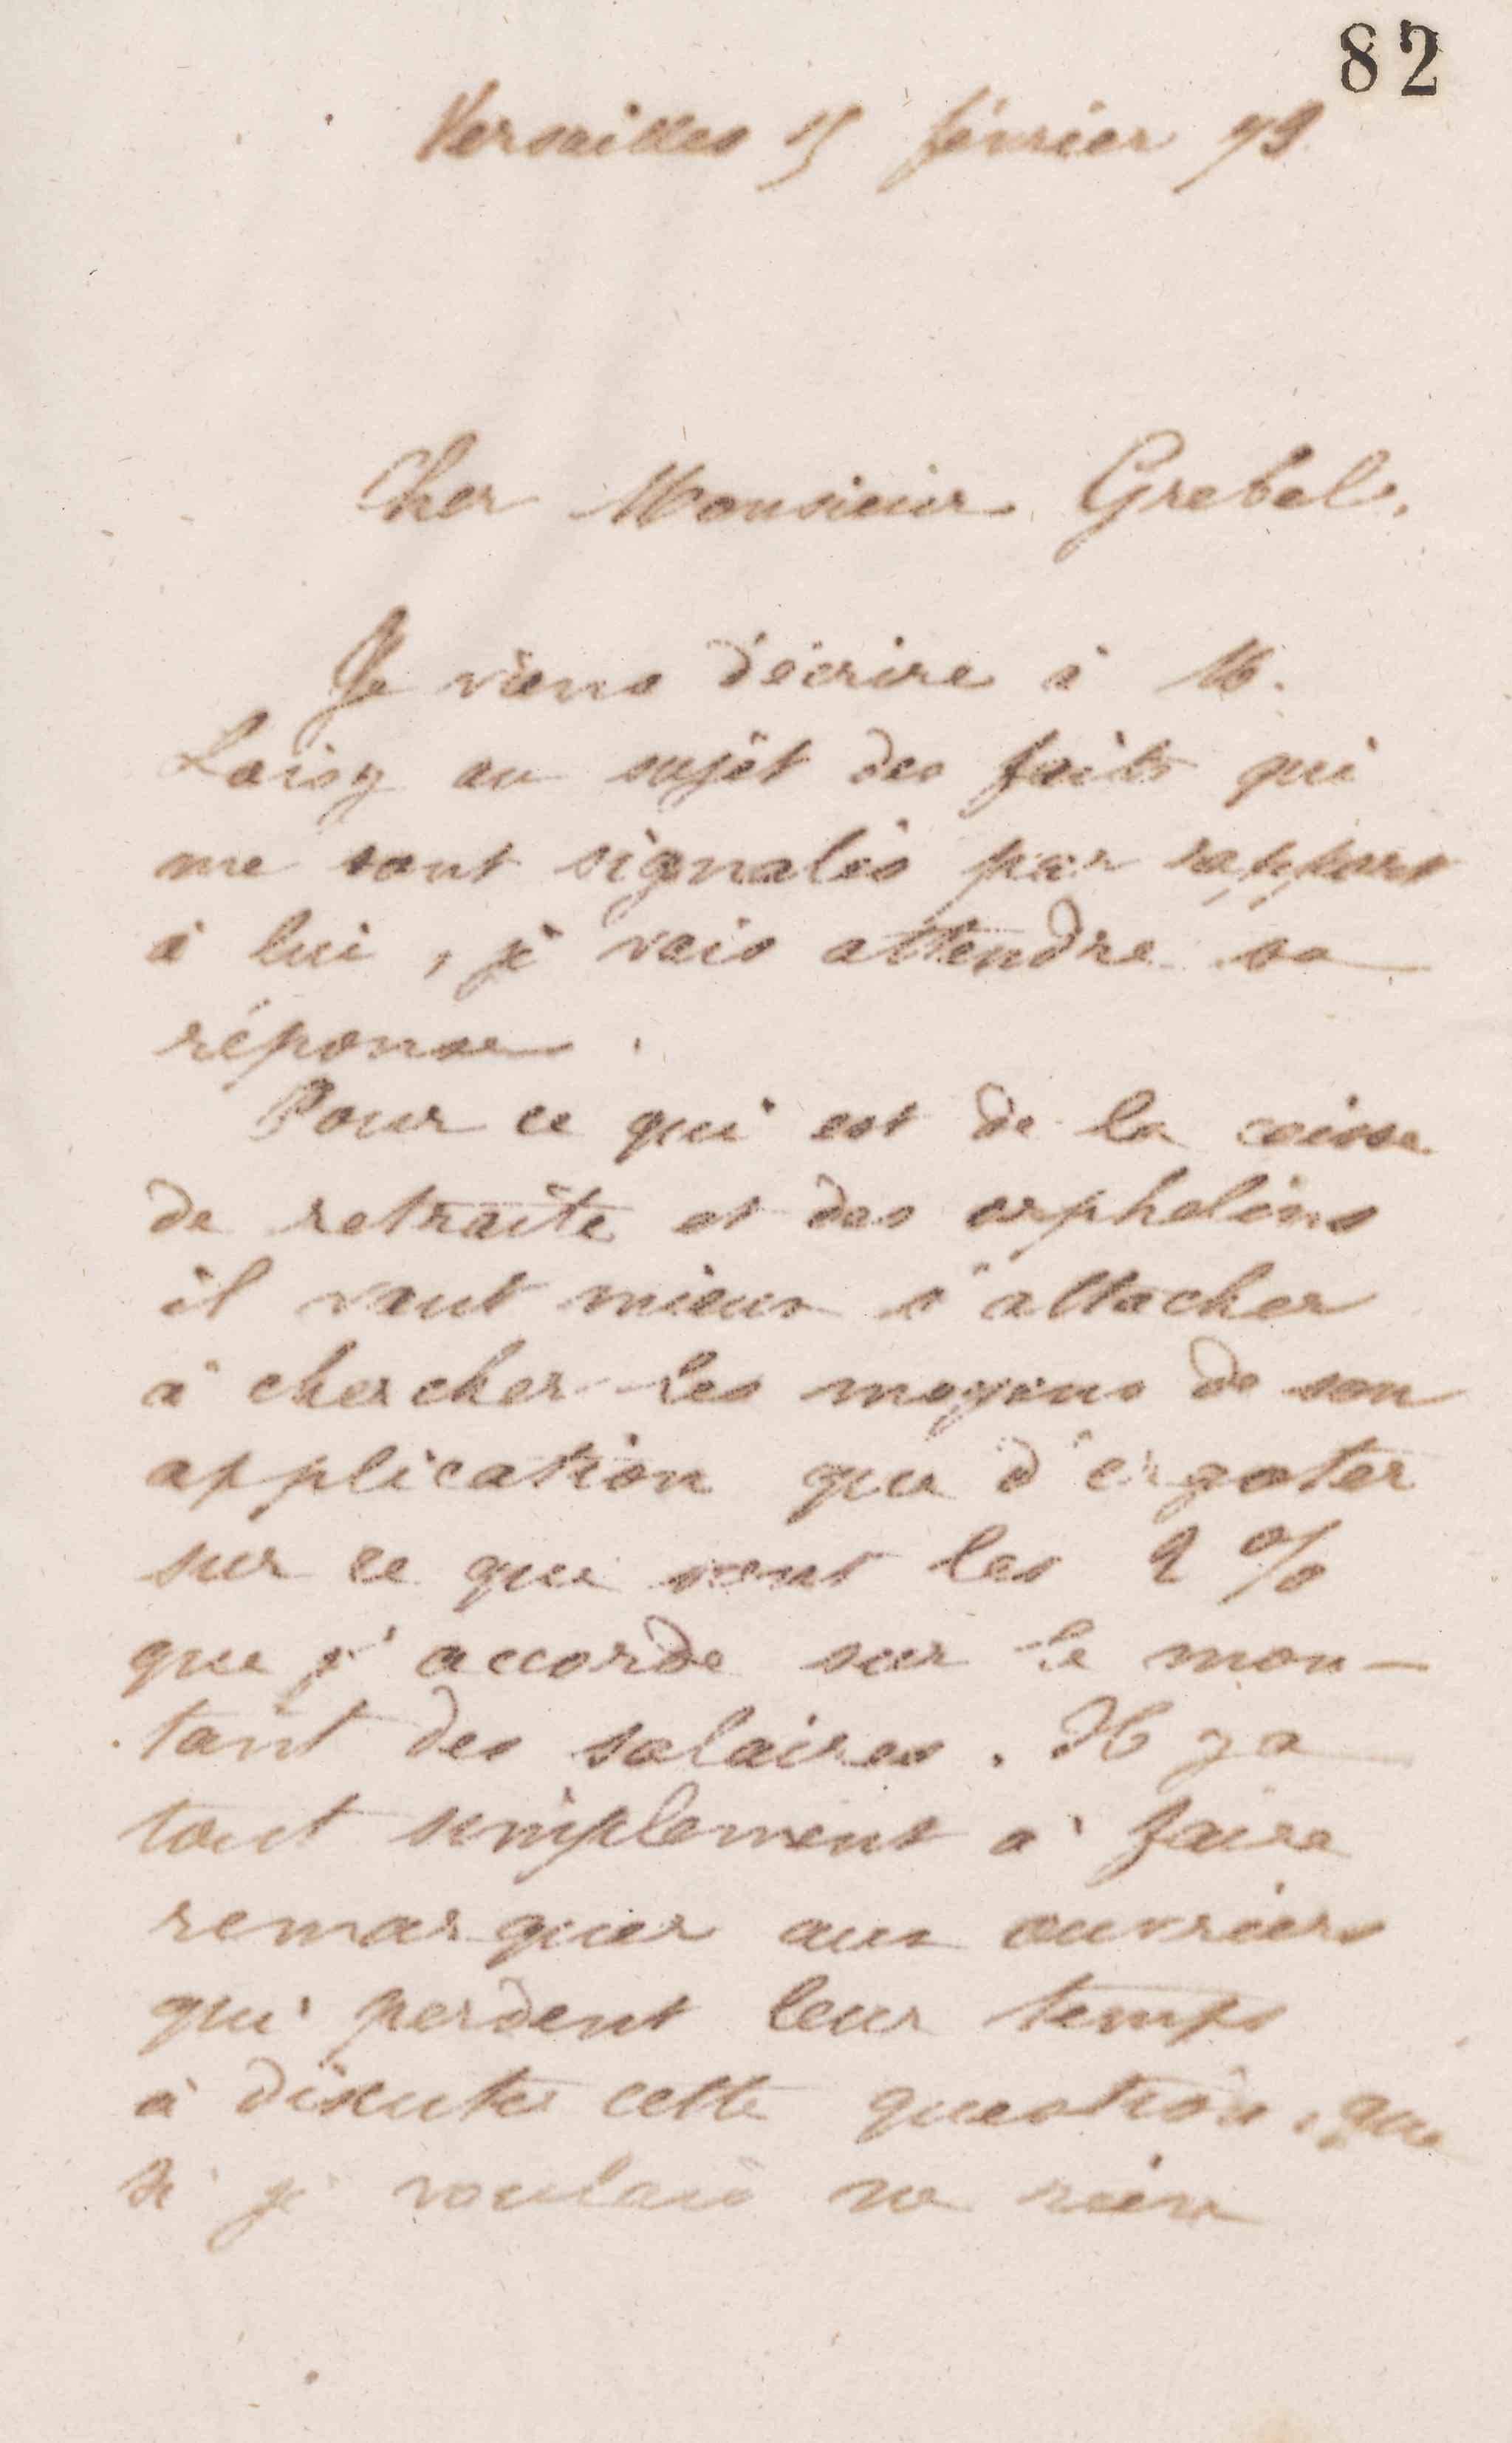 82
Versailles 15 février 73
Cher Monsieur Grebel,
Je viens d'écrire à M.
Loisy au sujet des faits qui
me sont signalés par rapport
à lui, je vais attendre sa
réponse.
Pour ce qui est de la caisse
de retraite et des orphelins
il vaut mieux s'attacher
à chercher les moyens de son
application que d'ergoter
sur ce que sont les 2 %
que j'accorde sur le mon-
tant des salaires. Il y a
tout simplement à faire
remarquer aux ouvriers
qui perdent leur temps
à discuter cette question, que
si je voulais ne rien